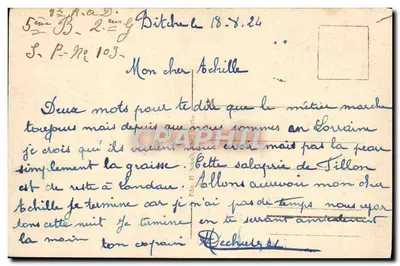 Bitche le 18.8.24
5ème B. 2ème G
S. P. No 103.
Mon cher Achille
Deux mots pour te dire que le métier marche
toujours mais depuis que nous sommes en Lorraine
je crois qu'ils veulent nous crever mais pas la peau
simplement la graisse. Cette salaprie de Tillon
est de reste à Landau. Allons aurevoir mon cher
Achille je termine car je n'ai pas de temps nous
dons cette nuit Je termine en te serrant amicalement
la main ton copain